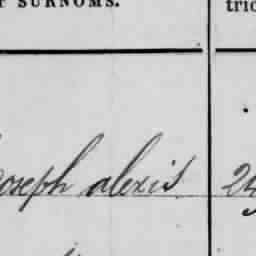 SURNOMS.
Joseph alexis 24